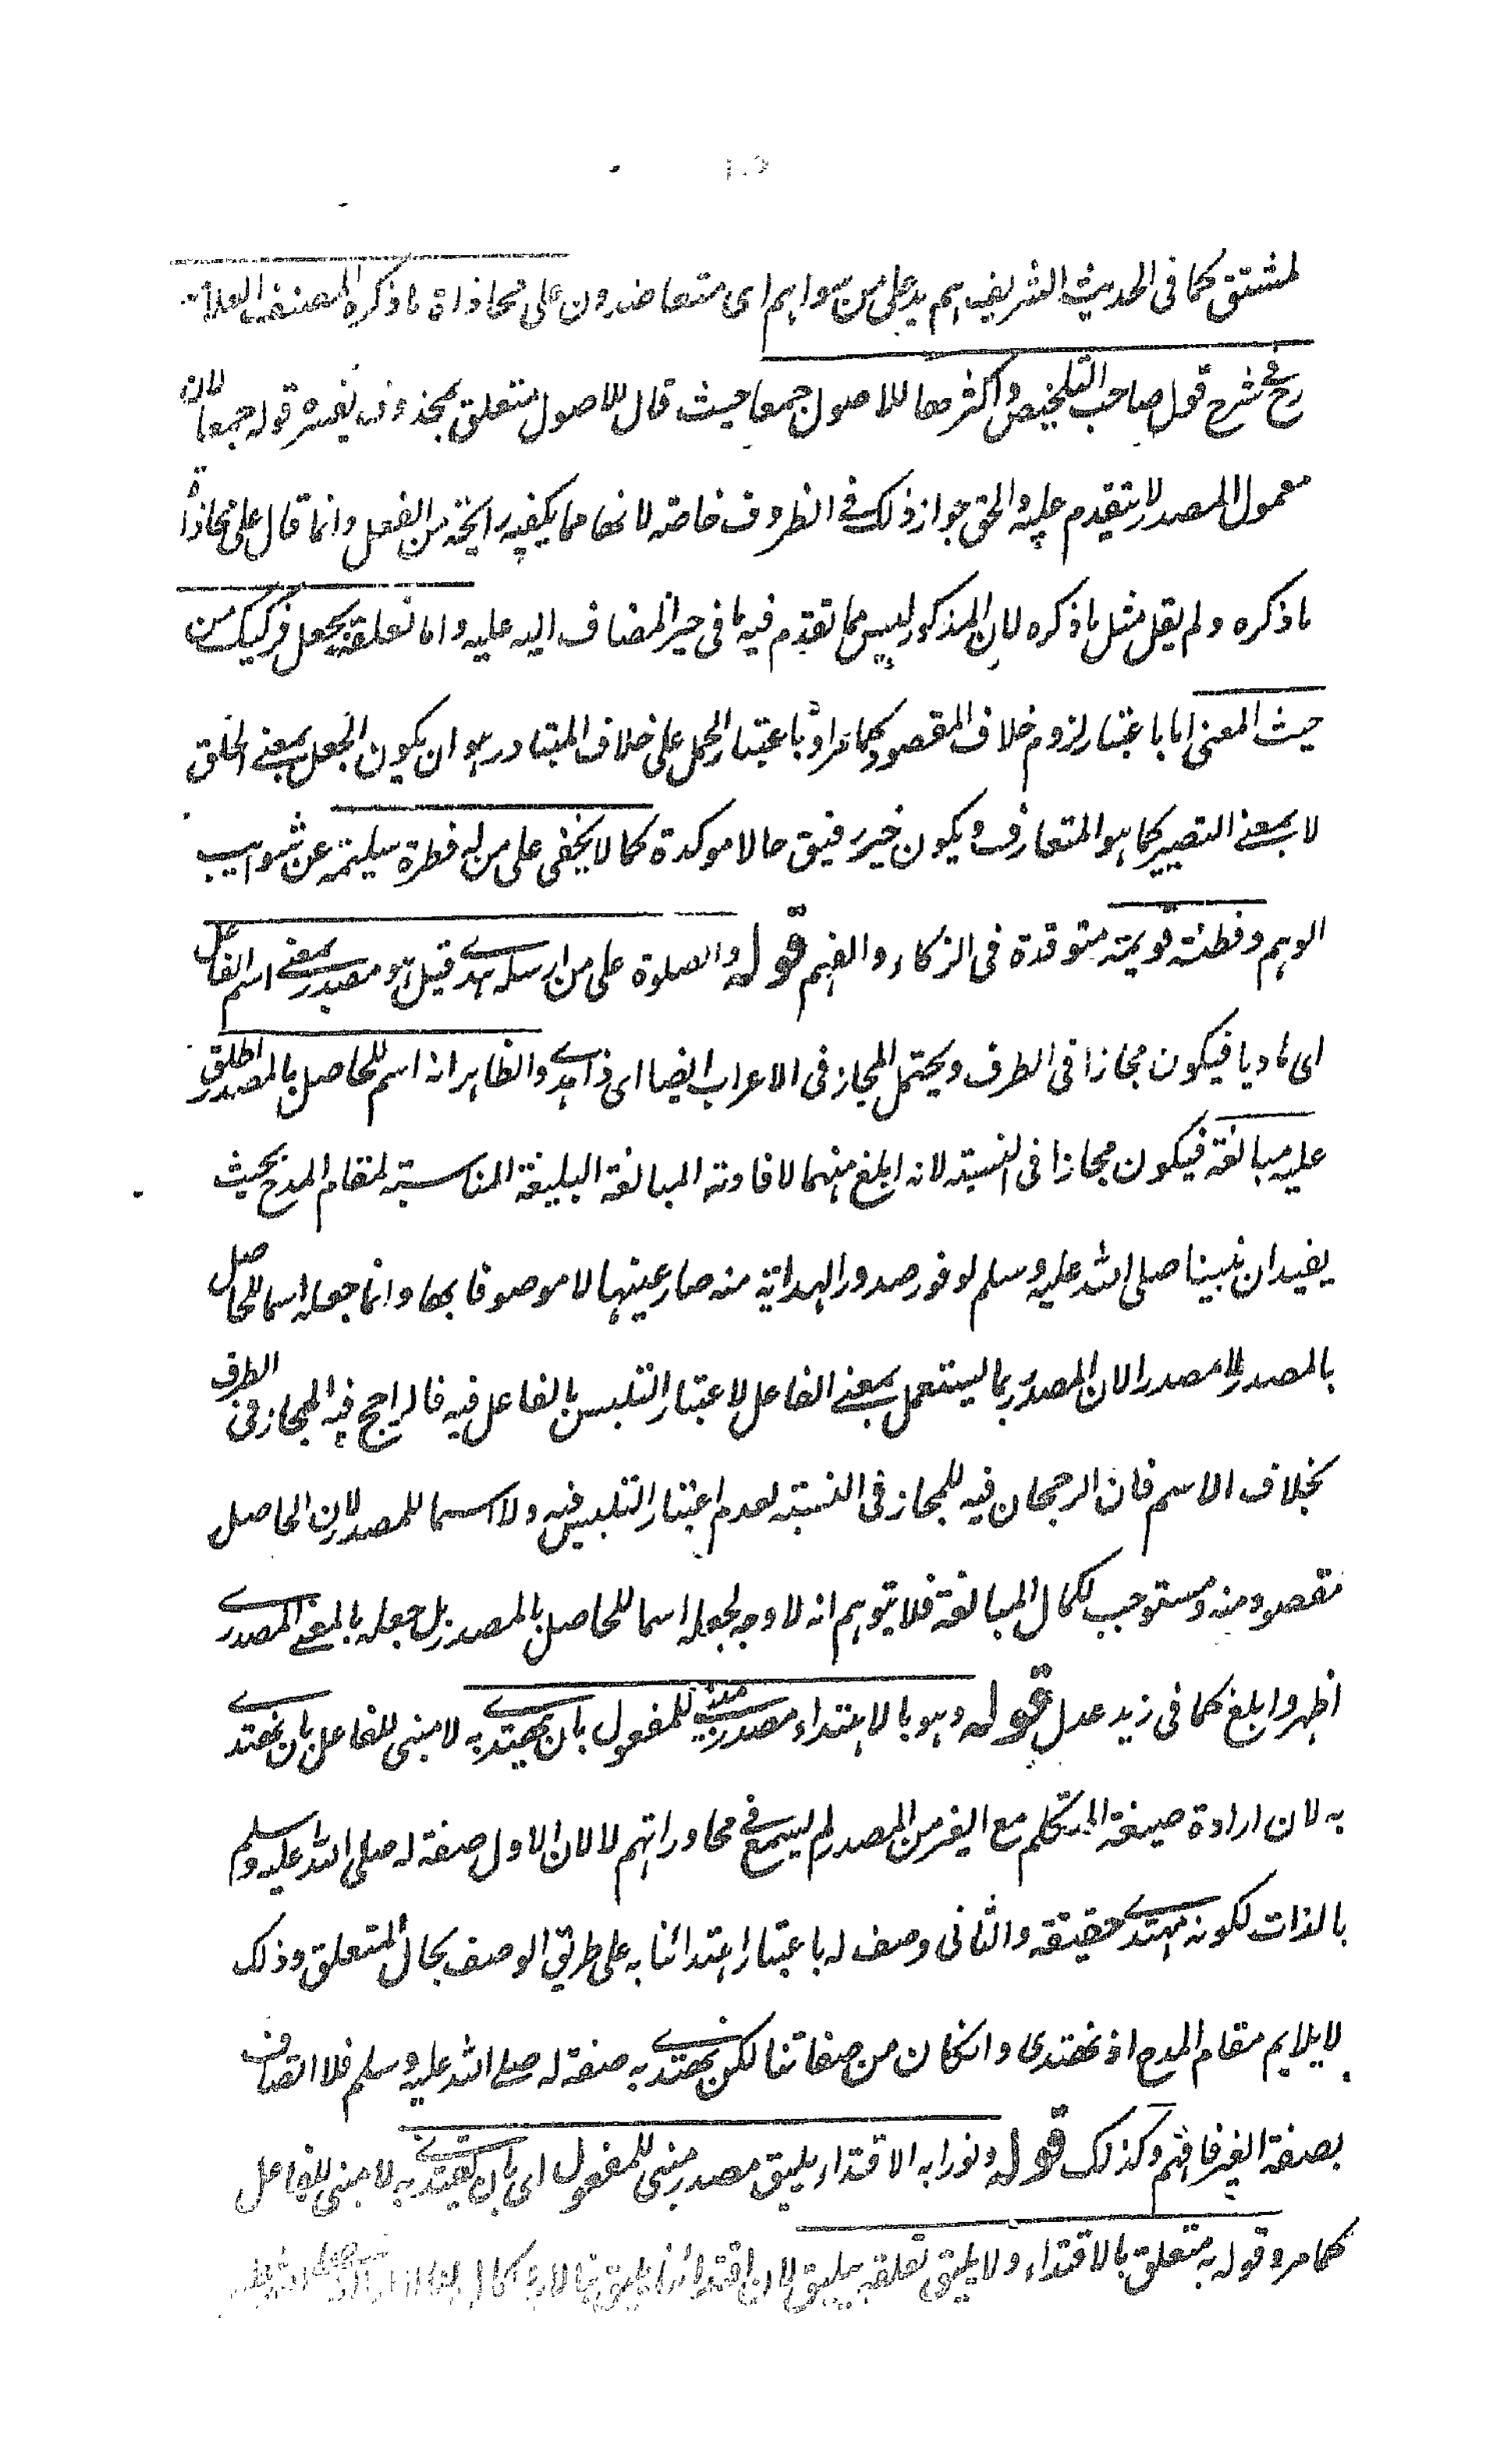 لمشتق كما فى الحديث الشريف هم يد على من سواهم اى متعاضدون على محاذاة ما ذكره المصنف العلامة
رح فى شرح قول صاحب التلخيص واكثرها للاصول جمعا حيث قال للاصول متعلق بمحذوف يفسره قوله جمعا لان
معمول المصدر لا يتقدم عليه والحق جواز ذلك فى الظروف خاصة لانها مما يكفيه رايحة من الفعل وانما قال على محاذاة
ما ذكره ولم يقل مثل ما ذكره لان المذكور ليس مما تقدم فيه ما فى حيز المضاف اليه عليه واما تعلقه بجعل فركيك من
حيث المعنى اما باعتبار لزوم خلاف المقصود كما مر او باعتبار الحمل على خلاف المتبادر هو ان يكون الجعل بمعنى الخلق
لا بمعنى التصيير كما هو المتعارف ويكون خير رفيق حالا موكدة كما لا يخفى على من له فطرة سليمة عن شوايب
الوهم وفطنة قويمة متوقدة فى الزكاء والفهم قوله والصلوة على من ارسله هدى قيل هو مصدر بمعنى اسم الفاعل
اى هاديا فيكون مجازا فى الطرف ويحتمل المجاز فى الاعراب ايضا اى ذا هدى والظاهر انه اسم للحاصل بالمصدر اطلق
عليه مبالغة فيكون مجازا فى النسبة لانه ابلغ منهما لافادته المبالغة البليغة المناسبة لمقام المدح بحيث
يفيد ان نبينا صلى الله عليه وسلم لوفور صدور الهداية منه صار عينها لا موصوفا بها وانما جعله اسما للحاصل
بالمصدر لا مصدرا لان المصدر ربما يستعمل بمعنى الفاعل لاعتبار التلبس بالفاعل فيه فالراجح فيه المجاز فى الطرف
بخلاف الاسم فان الرجحان فيه للمجاز فى النسبة لعدم اعتبار التلبس فيه ولا اسما للمصدر لان الحاصل
مقصود منه ومستوجب لكمال المبالغة فلا يتوهم انه لا وجه لجعله اسما للحاصل بالمصدر بل جعله بالمعنى المصدرى
اظهر وابلغ كما فى زيد عدل قوله وهو بالاهتداء مصدر مبنى للمفعول بان يهتدى به لا مبنى للفاعل بان نهتدى
به لان ارادة صيغة المتكلم مع الغير من المصدر لم يسمع فى محاوراتهم لا لان الاول صفة له صلى الله عليه وسلم
بالذات لكونه مهتدى حقيقة والثانى وصف له باعتبار اهتدائنا به على طريق الوصف بحال المتعلق وذلك
لا يلايم مقام المدح اذ نهتدى وانكان من صفاتنا لكن نهتدى به صفة له صلى الله عليه وسلم فلا اتصاف
بصفة الغير فافهم وكذلك قوله ونورا به الاقتداء يليق مصدر مبنى للمفعول اى بان يقتدى به لا مبنى للفاعل
كما مر وقوله به متعلق بالاقتداء ولا يليق تعلقه بيليق لان اقتدائنا يليق بنا لا به